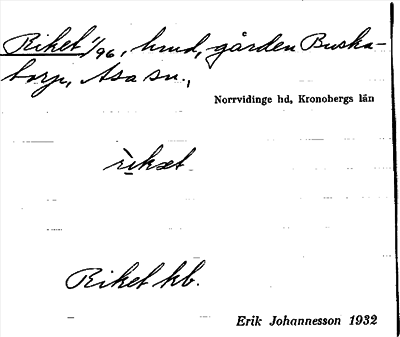 Riket 1/96, hmd, gården Buska-
torp, Asa sn.,
Norrvidinge hd, Kronobergs län
rìkæt
Riket kb.
Erik Johannesson 1932